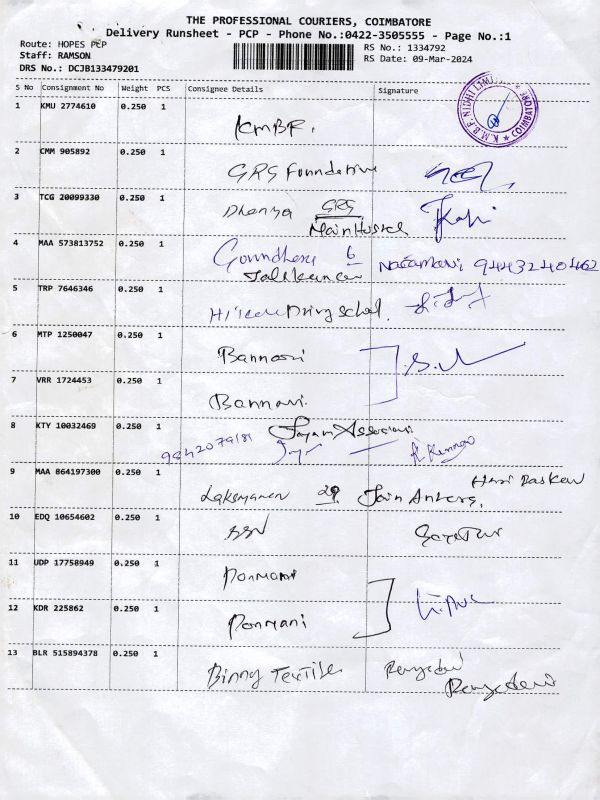 THE PROFESSIONAL COURIERS, COIMBATORE
Delivery Runsheet - PCP - Phone No.:0422-3505555 - Page No.:1
Route: HOPES PCP
RS No.: 1334792
Staff: RAMSON
RS Date: 09-Mar-2024
DRS No.: DCJB133479201
S No Consignment No Weight PCS Consignee Details Signature
1 KMU 2774610 0.250 1
K.M.B.F. NIDHI LIMITED COIMBATORE
KMBF.
2 CMM 905892 0.250 1
GRG Foundative
3 TCG 20099330 0.250 1
Dhanya GRG
Main Hostel
4 MAA 573813752 0.250 1
6 Nagamani 9443240462
5 TRP 7646346 0.250 1
Driving School.
6 MTP 1250047 0.250 1
Bannari
7 VRR 1724453 0.250 1
Bannari
8 KTY 10032469 0.250 1
Jayam
9842079181
9 MAA 864197300 0.250 1
Hari Baskar
29 Jain
10 EDQ 10654602 0.250 1
11 UDP 17758949 0.250 1
Ponmani
12 KDR 225862 0.250 1
Ponmani
13 BLR 515894378 0.250 1
Binny Textile